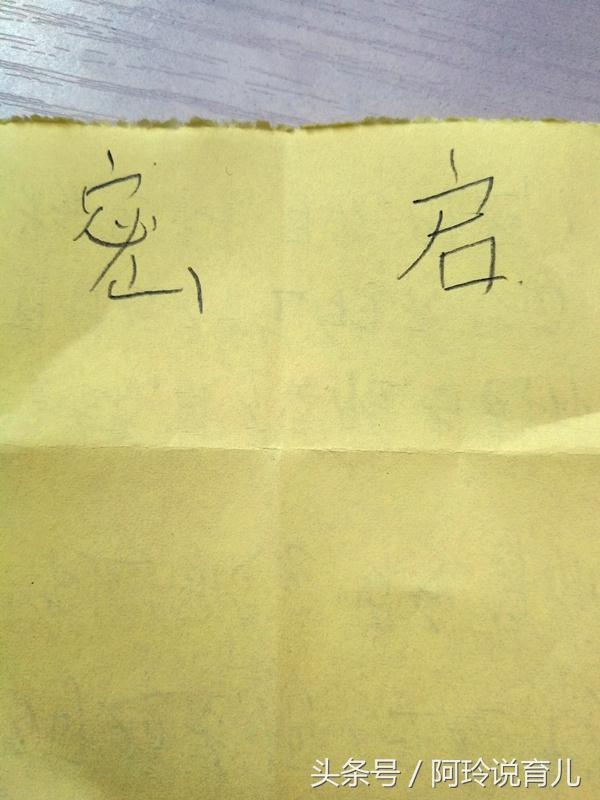 密启
头条号 / 阿玲说育儿